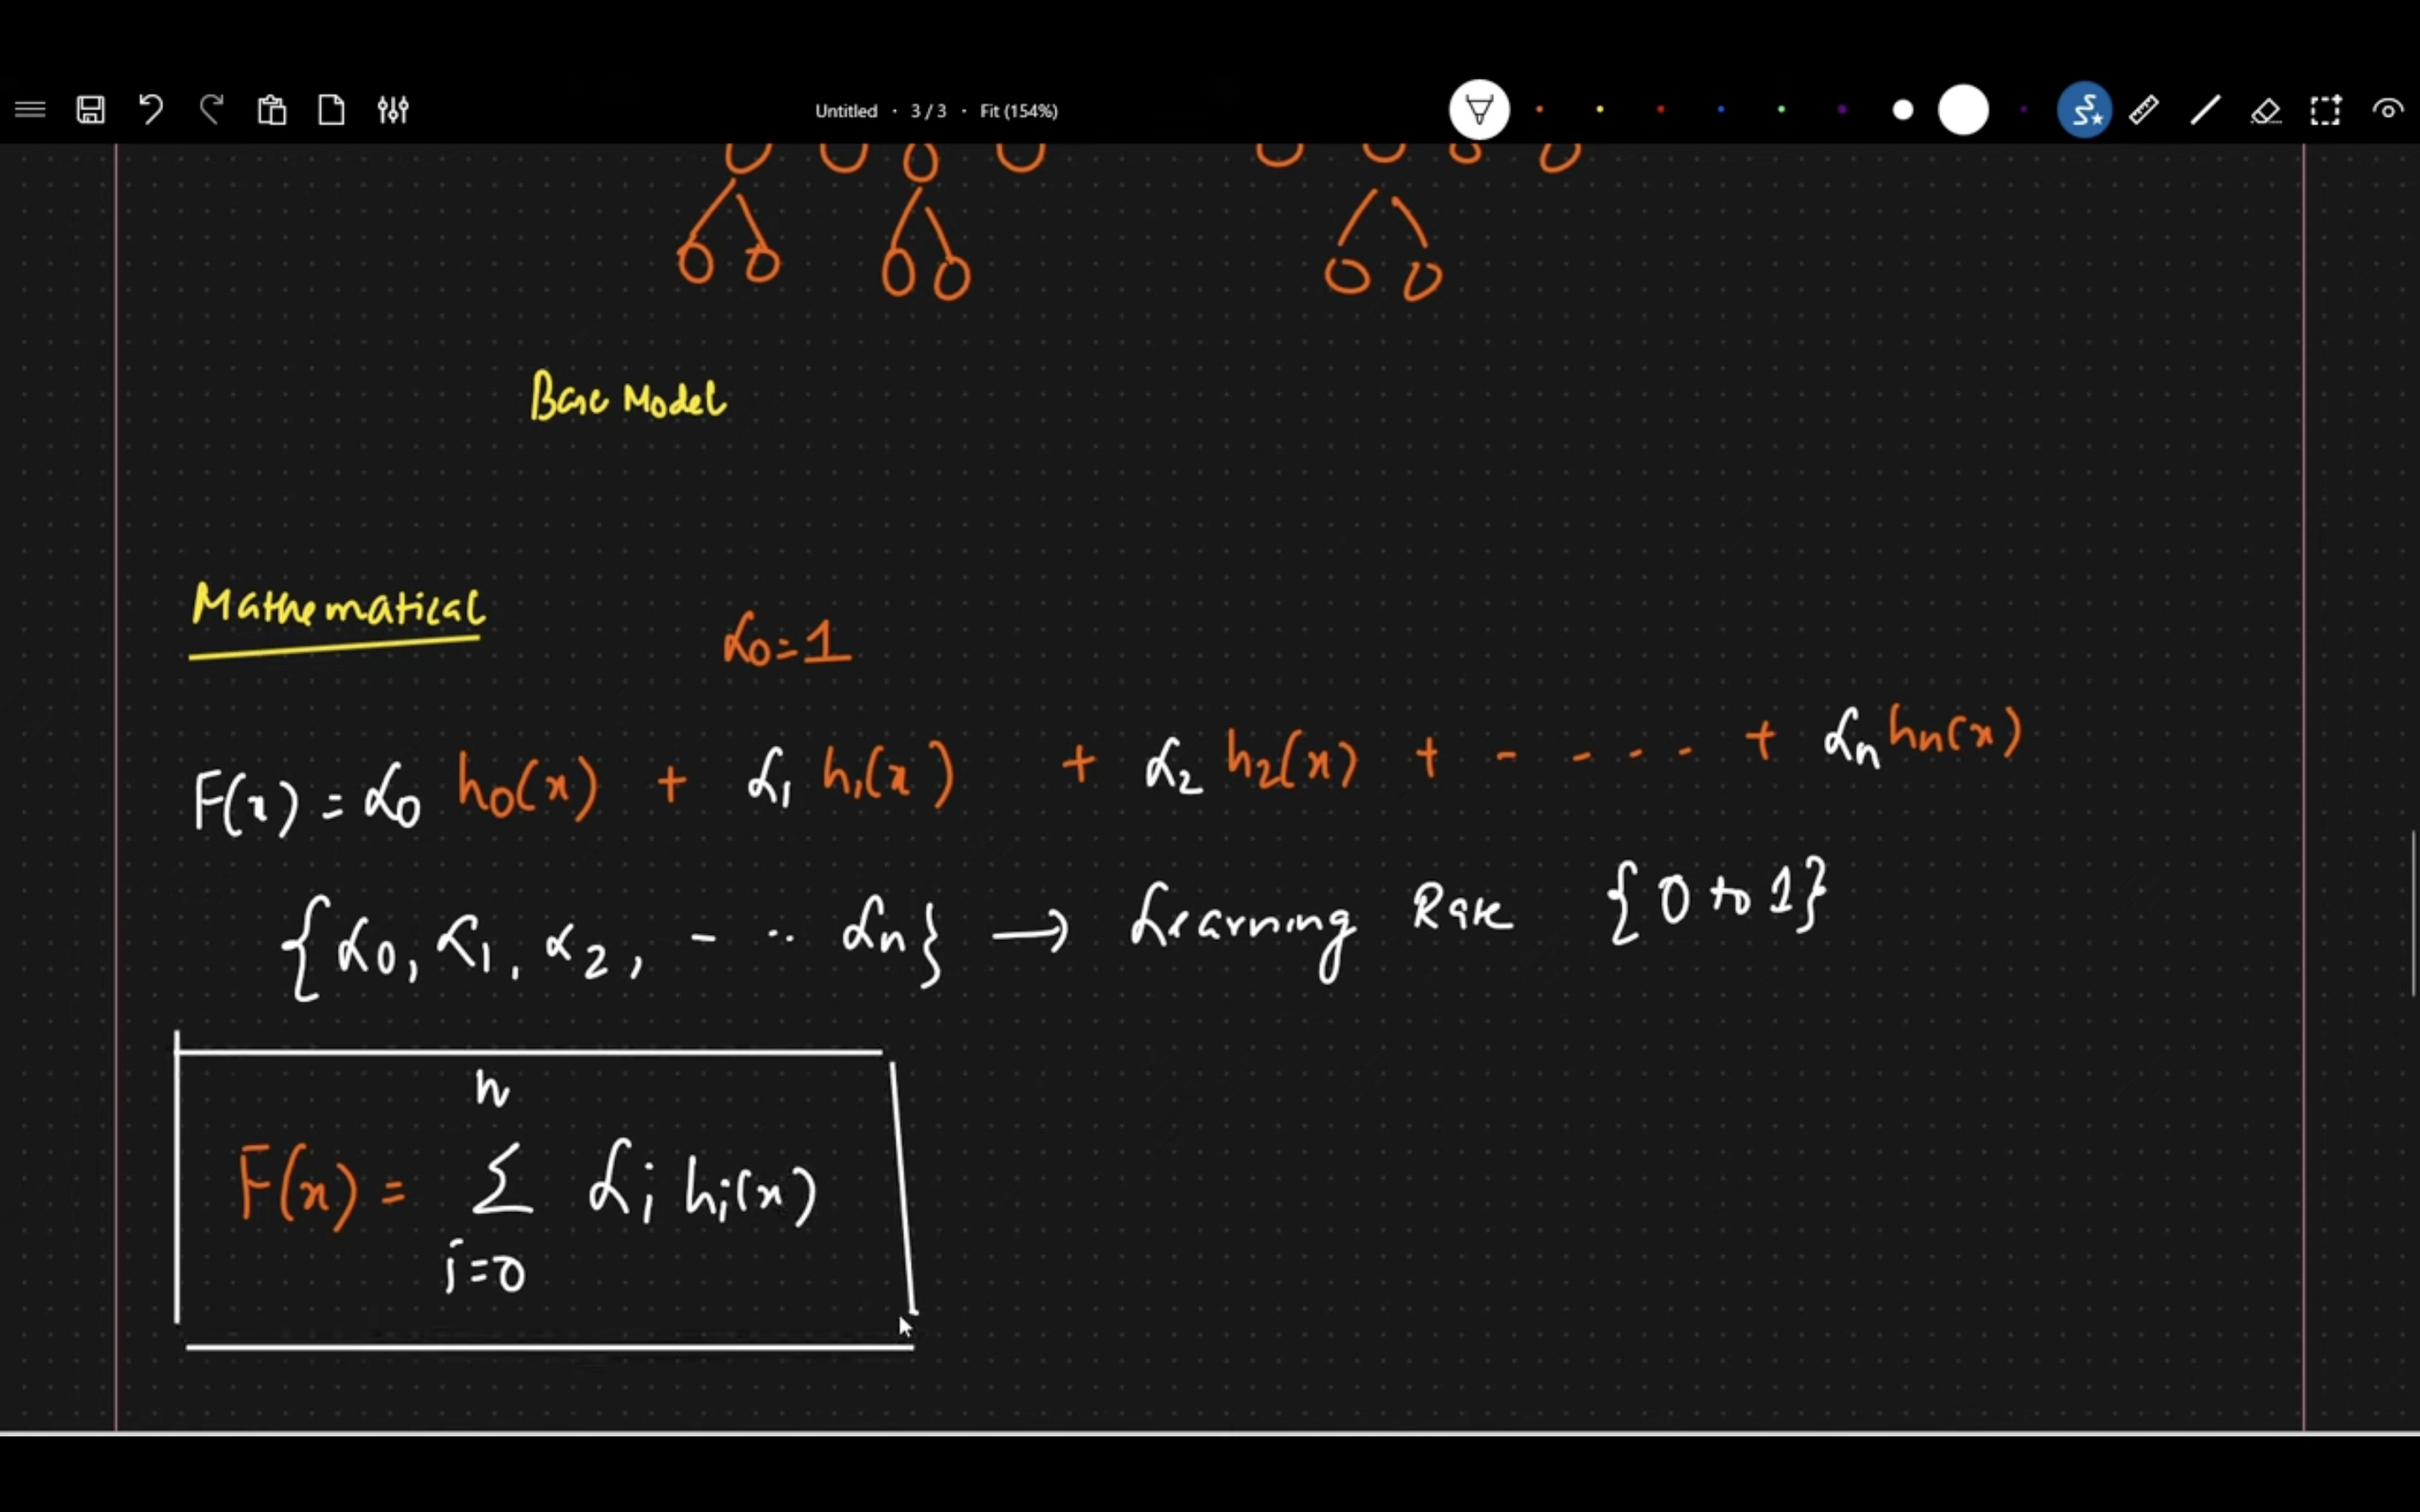 Untitled · 3 / 3 · Fit (154%)
Base Model
Mathematical
α0=1
F(x) = α0 h0(x) + α1 h1(x) + α2 h2(x) + - - - - + αn hn(x)
{α0, α1, α2, - ·· αn} → Learning Rate {0 to 1}
n
F(x) = Σ αi hi(x)
i=0